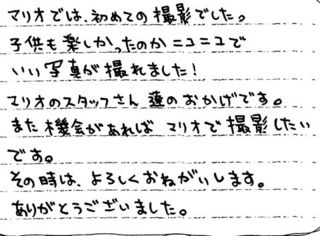 マリオでは、初めての撮影でした。
子供も楽しかったのかニコニコで
いい写真が撮れました！
マリオのスタッフさん達のおかげです。
また機会があればマリオで撮影したい
です。
その時は、よろしくおねがいします。
ありがとうございました。